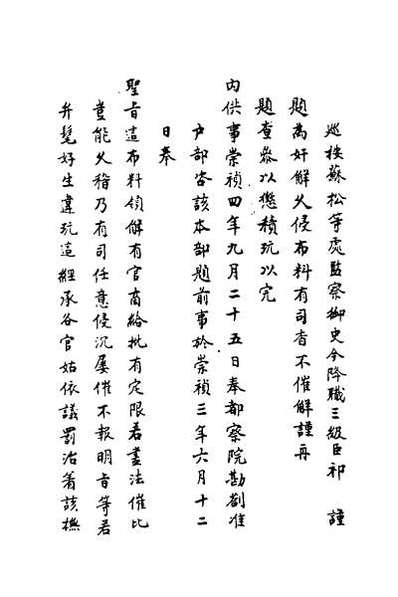 巡按蘇松等處監察御史今降職三級臣祁 謹
題為奸解久侵布料有司杳不催解謹再
題查參以懲積玩以完
內供事崇禎四年九月二十五日奉都察院勘劄准
戶部咨該本部題前事於崇禎三年六月十二
日奉
聖旨這布料領解有官商給批有定限若盡法催比
豈能久稽乃有司任意侵沉屢催不報明旨等若
弁髦好生違玩這經承各官姑依議罰治着該撫